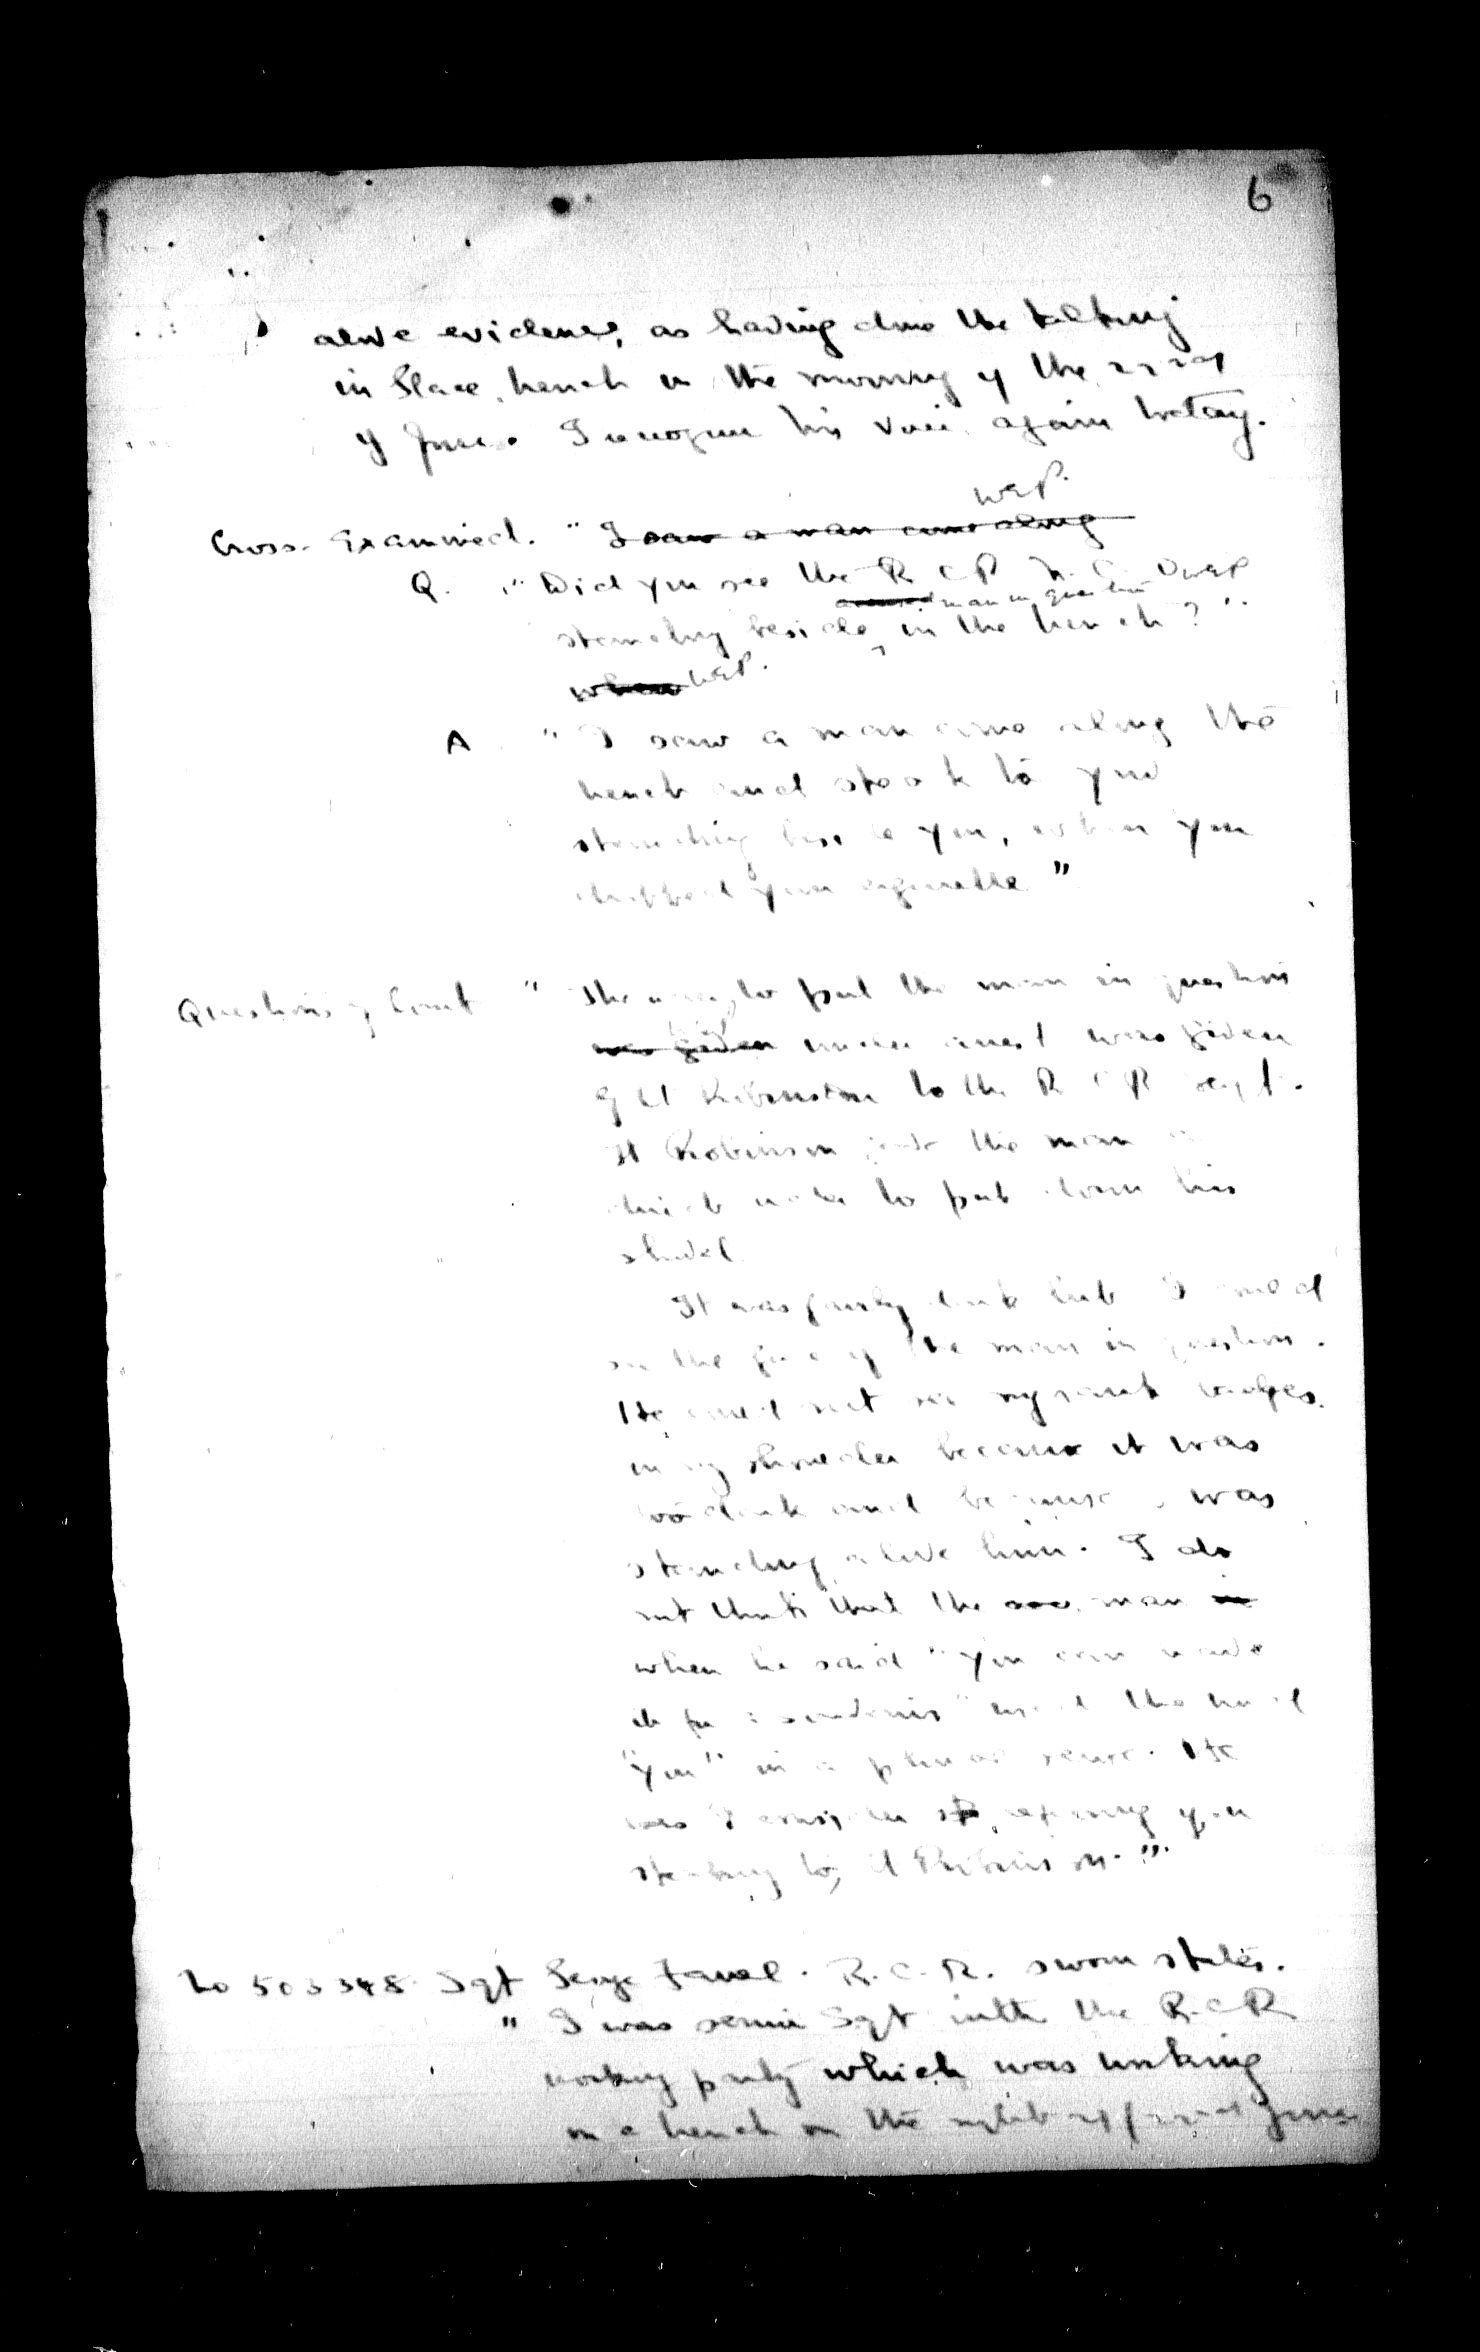 6
above evidence, as having done the talking
in Slave trench on the morning of the 22nd
of June. I recognise his voice again today.
W.E.P.
Cross-Examined. " I saw a man come along
Q. " Did you see the R C R N.C.O W.E.P
man in question
standing beside in the trench? "
when W.E.P.
A " I saw a man come along the
trench and stood to your
standing beside you, when you
dropped your cigarette "
Questions by Court " The order to put the man in question
was given under arrest was given
by Lt Robinson to the R C R Sergt.
Lt Robinson gave the man a
direct order to put down his
shovel.
It was fairly dark but I could
see the face of the man in question.
He could not see my rank badges
on my shoulder because it was
too dark and because I was
standing above him. I do
not think that the man in
when he said " you can
it for " used the word
"you" in a plural sense. He
was I consider
speaking to Lt Robinson. "
No 503348 Sgt R.C.R. sworn states.
" I was senior Sgt with the R.C.R
working party which was working
on a trench on the night of June